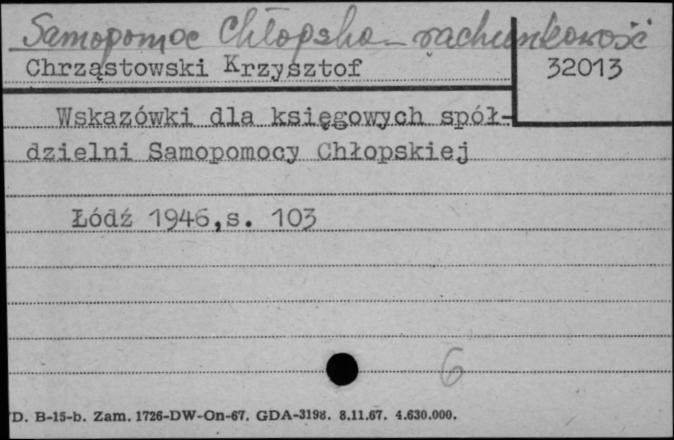 Samopomoc Chłopska – rachunkowość
Chrząstowski Krzysztof
32013
Wskazówki dla księgowych spół-
dzielni Samopomocy Chłopskiej
Łódź 1946,s. 103
6
D. B-15-b. Zam. 1726-DW-On-67. GDA-3198. 8.11.67. 4.630.000.